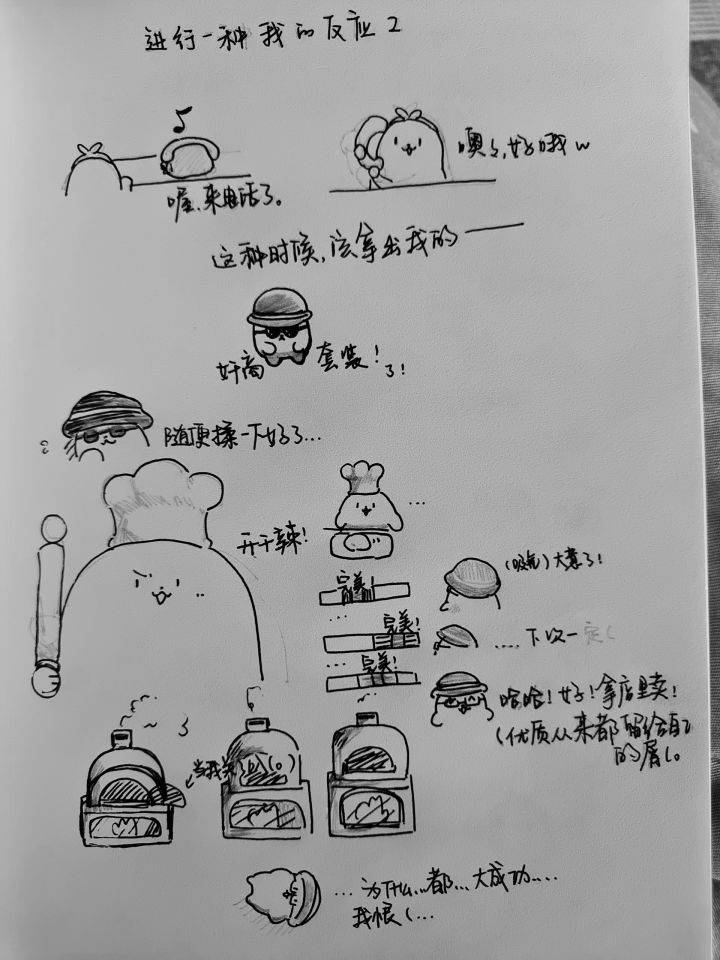 进行一种我的反应2
喔,来电话了。
噢噢,好哦w
这种时候,该拿出我的——
奸商套装!
随便揉一下好了...
开干辣!
...
完美!
(吸气)大意了!
...
完美!
....下次一定(
...
完美!
哈哈!好!拿店里卖!
(优质从来都留给自己
的屑(。
...为什么...都...大成功....
我恨(...